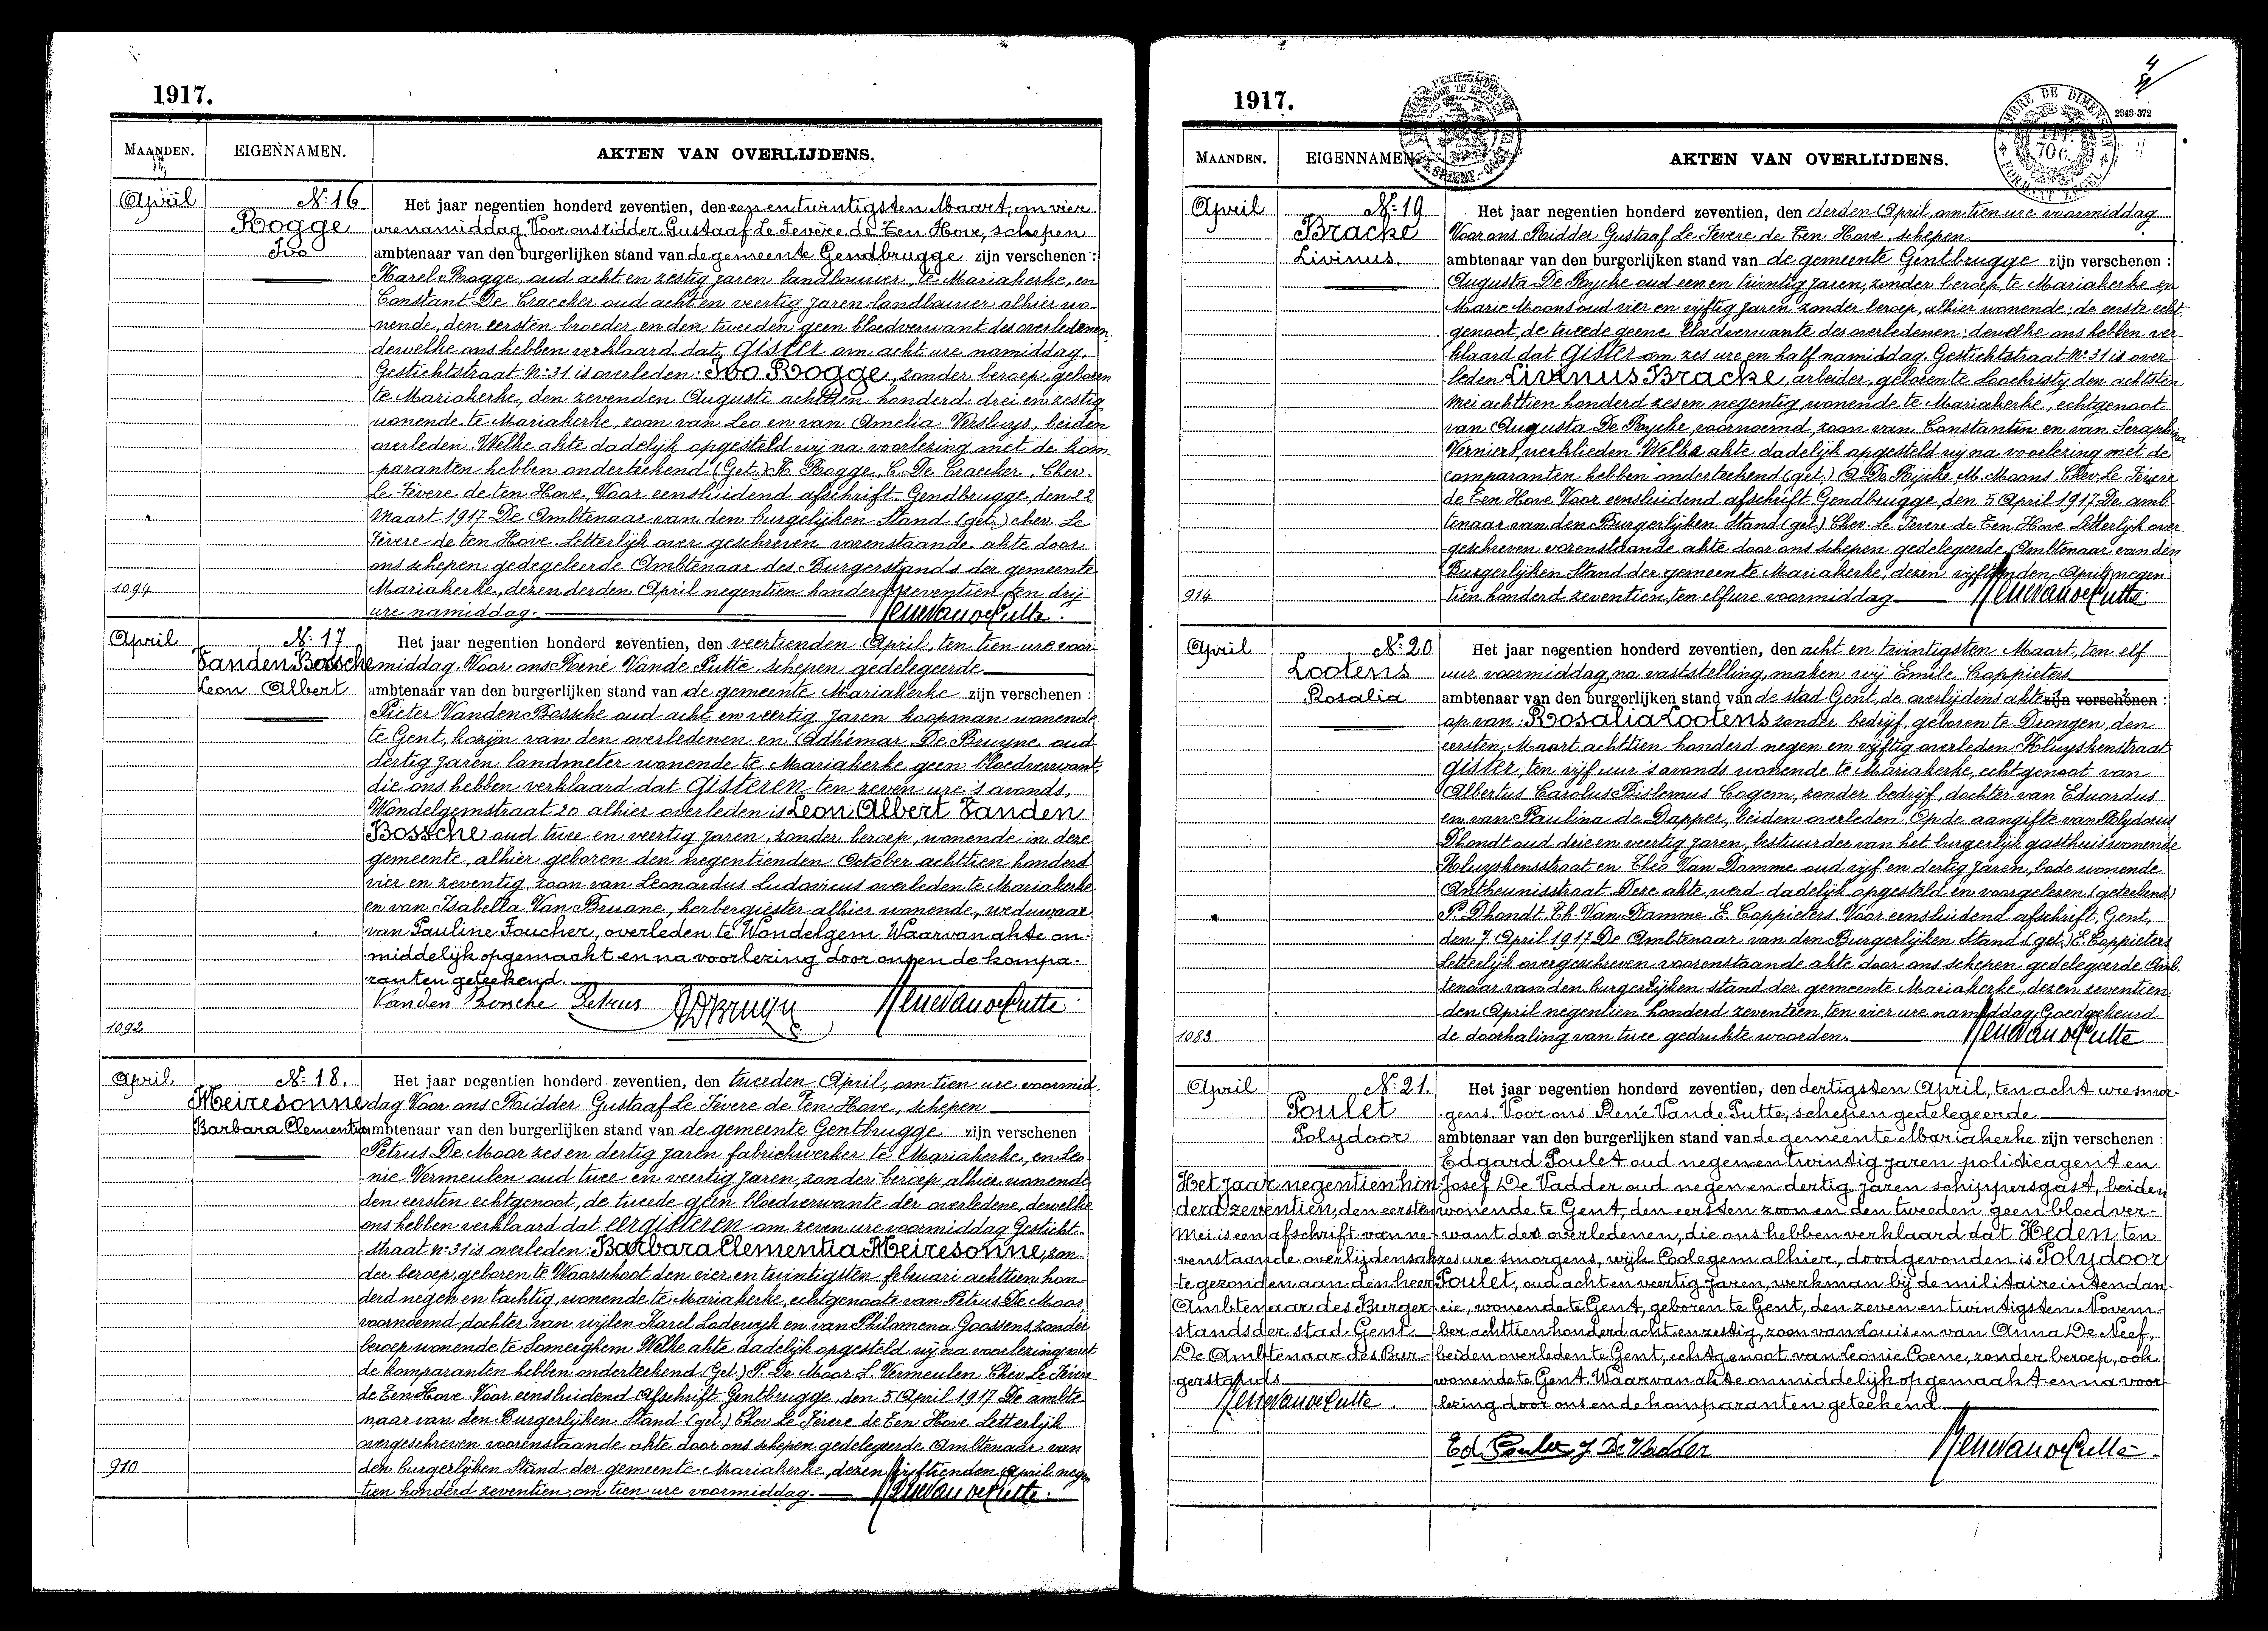 1917.
MAANDEN.
EIGENNAMEN.
AKTEN VAN OVERLIJDENS.
April
N: 16
Rogge
Ivo
Het jaar negentien honderd zeventien, den een en twintigsten Maart, om vier
ure namiddag. Voor ons ridder Gustaaf Le Fevere de Ten Hove, schepen
ambtenaar van den burgerlijken stand van de gemeente Gendbrugge zijn verschenen :
Karel Rogge, oud acht en zestig jaren landbouwer, te Mariakerke, en
Constant De Craecker oud acht en veertig jaren landbouwer alhier wo-
nende, den eersten broeder en den tweeden geen bloedverwant des overledenen
dewelke ons hebben verklaard dat gister om acht ure namiddag,
Gestichtstraat No: 31 is overleden: Ivo Rogge, zonder beroep, geboren
te Mariakerke, den zevenden Augusti achttien honderd drei en zestig
wonende te Mariakerke, zoon van Leo en van Amelia Versluys, beiden
overleden. Welke akte dadelijk opgesteld wij na voorlezing met de kom
paranten hebben onderteekend (Get.) K. Rogge, C. De Craecker. Chev.
Le Fèvere de ten Hove, Voor eensluidend afschrift. Gendbrugge, den 22
Maart 1917 De Ambtenaar van den burgelijken Stand (get.) chev. Le
Fèvere de ten Hove. Letterlijk over geschreven vorenstaande akte door
ons schepen gedegeleerde Ambtenaar des Burgerstands der gemeente
Mariakerke, dezen derden April negentien honderd zeventien, ten drij
ure namiddag.
1094
April
N: 17
Vanden Bossche
Leon Albert
Het jaar negentien honderd zeventien, den veertienden April, ten tien ure voor
middag. Voor ons René Vande Putte, schepen gedelegeerde
ambtenaar van den burgerlijken stand van de gemeente Mariakerke zijn verschenen :
Pieter Vanden Bossche oud acht en veertig jaren koopman wonende
te Gent, kozijn van den overledenen en Adhémar De Bruyne oud
dertig jaren landmeter wonende te Mariakerke geen bloedverwant,
die ons hebben verklaard dat gisteren ten zeven ure 's avonds,
Wondelgemstraat 20 alhier overleden is Leon Albert Vanden
Bossche oud twee en veertig jaren, zonder beroep, wonende in deze
gemeente, alhier geboren den negentienden October achttien honderd
vier en zeventig, zoon van Leonardus Ludovicus overleden te Mariakerke
en van Isabella Van Bruane, herbergiester alhier wonende, weduwaar
van Pauline Foucher, overleden te Wondelgem. Waarvan akte on-
middelijk opgemaakt en na voorlezing door ons en de kompa-
ranten geteekend.
Vanden Bossche Petrus
1092
April
N: 18.
Meiresonne
Barbara Clementia
Het jaar negentien honderd zeventien, den tweeden April, om tien ure voormid-
dag Voor ons Ridder Gustaaf Le Fèvere de Ten Hove, schepen
ambtenaar van den burgerlijken stand van de gemeente Gentbrugge zijn verschenen
Petrus De Moor zes en dertig jaren fabriekwerker te Mariakerke, en Leo-
nie Vermeulen oud twee en veertig jaren, zonder beroep alhier wonende
den eersten echtgenoot, de tweede geen bloedverwante der overledene, dewelke
ons hebben verklaard dat eergisteren om zeven ure voormiddag Gesticht-
straat no: 31 is overleden: Barbara Clementia Meiresonne, zon-
der beroep, geboren te Waarschoot den vier en twintigsten februari achttien hon-
derd negen en tachtig, wonende te Mariakerke, echtgenoote van Petrus De Moor
voornoemd, dochter van wijlen Karel Lodewijk en van Philomena Goossens, zonder
beroep wonende te Somerghem Welke akte dadelijk opgesteld wij na voorlezing met
de komparanten hebben onderteekend (Get.) P. De Moor. L. Vermeulen. Chev. Le Fèvere
de Ten Hove. Voor eensluidend Afschrift. Gentbrugge, den 5 April 1917 De ambte-
naar van den Burgerlijken Stand (get.) Chev Le Fèvere de Ten Hove Letterlijk
overgeschreven voorenstaande akte door ons schepen gedelegeerde Ambtenaar van
den burgerlijken Stand der gemeente Mariakerke, dezen vijftienden April negen
tien honderd zeventien, om tien ure voormiddag.
910
1917.
4
2343-372
MAANDEN.
EIGENNAMEN
AKTEN VAN OVERLIJDENS.
April
N: 19
Bracke
Livinus.
Het jaar negentien honderd zeventien, den derden April, om tien ure voormiddag
Voor ons Ridder Gustaaf Le Fevere de Ten Hove, schepen
ambtenaar van den burgerlijken stand van de gemeente Gentbrugge zijn verschenen :
Augusta De Rycke oud een en twintig jaren, zonder beroep, te Mariakerke en
Marie Moons oud vier en vijftig jaren zonder beroep, alhier wonende; de eerste echt-
genoot, de tweede geene bloedverwante des overledenen: dewelke ons hebben ver-
klaard dat gister om zes ure en half namiddag. Gestichtstraat No: 31 is over-
leden Livinus Bracke, arbeider, geboren te Loochristy den achtsten
Mei achttien honderd zes en negentig, wonende te Mariakerke, echtgenoot
van Augusta De Rycke voornoemd, zoon van Constantin en van Seraphina
Verniert, verklieden. Welke akte dadelijk opgesteld wij na voorlezing met de
comparanten hebben onderteekend (get.) A. De Rijcke M. Moons. Chev. Le Fèvere
de Ten Hove Voor eensluidend afschrift Gendbrugge, den 5 April 1917. De amb-
tenaar van den Burgerlijken Stand (get.) Chev. Le Fèvere de Ten Hove Letterlijk over-
geschreven vorenstaande akte door ons schepen gedelegeerde Ambtenaar van den
Burgerlijken Stand der gemeente Mariakerke, dezen vijftienden April negen
tien honderd zeventien, ten elf ure voormiddag
914
April
N: 20
Lootens
Rosalia
Het jaar negentien honderd zeventien, den acht en twintigsten Maart, ten elf
uur voormiddag, na vaststelling, maken wij Emile Coppieters
ambtenaar van den burgerlijken stand van de stad Gent, de overlijdens akte zijn verschenen :
op van: Rosalia Lootens zonder bedrijf, geboren te Drongen, den
eersten Maart achttien honderd negen en vijftig overleden Kluyskenstraat
gister, ten vijf uur 's avonds wonende te Mariakerke, echtgenoot van
Albertus Carolus Bislemus Cogem, zonder bedrijf, dochter van Eduardus
en van Paulina de Dapper, beiden overleden. Op de aangifte van Polydorus
Dhondt oud drie en veertig jaren, bestuurder van het burgerlijk gasthuis wonende
Kluyskensstraat en Theo Van Damme oud vijf en dertig jaren, bode wonende
Antheunisstraat. Deze akte, werd dadelijk opgesteld en voorgelezen. (geteekend)
P. Dhondt. Th. Van Damme. E. Coppieters. Voor eensluidend afschrift, Gent,
den 7 April 1917 De Ambtenaar van den Burgerlijken Stand (get.) E. Coppieters
Letterlijk overgeschreven voorenstaande akte door ons schepen gedelegeerde Amb-
tenaar van den burgerlijken stand der gemeente Mariakerke, dezen zeventien
den April negentien honderd zeventien, ten vier ure namiddag, Goedgekeurd
de doorhaling van twee gedrukte woorden.
1083
April
N: 21.
Poulet
Polydoor
Het jaar negentien honderd zeventien, den dertigsten April, ten acht ure smor-
gens. Voor ons René Vande Putte, schepen gedelegeerde
ambtenaar van den burgerlijken stand van de gemeente Mariakerke zijn verschenen :
Edgard Poulet oud negen en twintig jaren politieagent en
Josef De Vadder oud negen en dertig jaren schippersgast, beiden
wonende te Gent, den eersten zoon en den tweeden geen bloedver-
want des overledenen, die ons hebben verklaard dat Heden, ten
zes ure smorgens, wijk Coolegem alhier, dood gevonden is Polydoor
Poulet, oud acht en veertig jaren, werkman bij de militaire intendan-
cie, wonende te Gent, geboren te Gent, den zeven en twintigsten Novem-
ber achttien honderd acht en zestig, zoon van Louis en van Anna De Neef,
beiden overleden te Gent, echtgenoot van Leonie Coene, zonder beroep, ook
wonende te Gent. Waarvan akte onmiddelijk opgemaakt en na voor-
lezing door ons en de komparanten geteekend.
Het jaar negentien hon
derd zeventien, den eersten
Mei is een afschrift van ne-
venstaande overlijdensak-
te gezonden aan den heer
Ambtenaar des Burger-
stands der stad Gent.
De Ambtenaar des Bur-
gerstands.
Ed. Poulet J. De Vadder